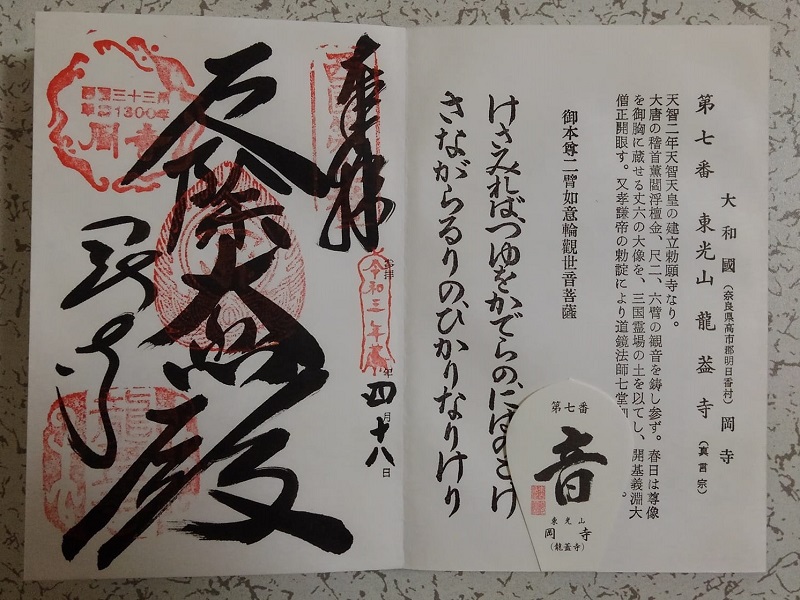 大和國(奈良県高市郡明日香村)岡寺
第七番 東光山龍蓋寺(真言宗)
天智二年天智天皇の建立勅願寺なり。
大唐の稽首薫閻浮檀金、尺二、六臂の観音を鋳し参ず。春日は尊像
を御胸に蔵せる丈六の大像を、三国霊場の土を以てし、開基義淵大
僧正開眼す。又孝謙帝の勅諚により道鏡法師七堂
御本尊二臂如意輪觀世音菩薩
けさみればつゆをかでらのにはのこけ
さながらるりのひかりなりけり
第七番
音
東光山
岡寺
(龍蓋寺)
奉拝
令和三年
年四月十八日
厄除大悲殿
岡寺
三十三所
1300年